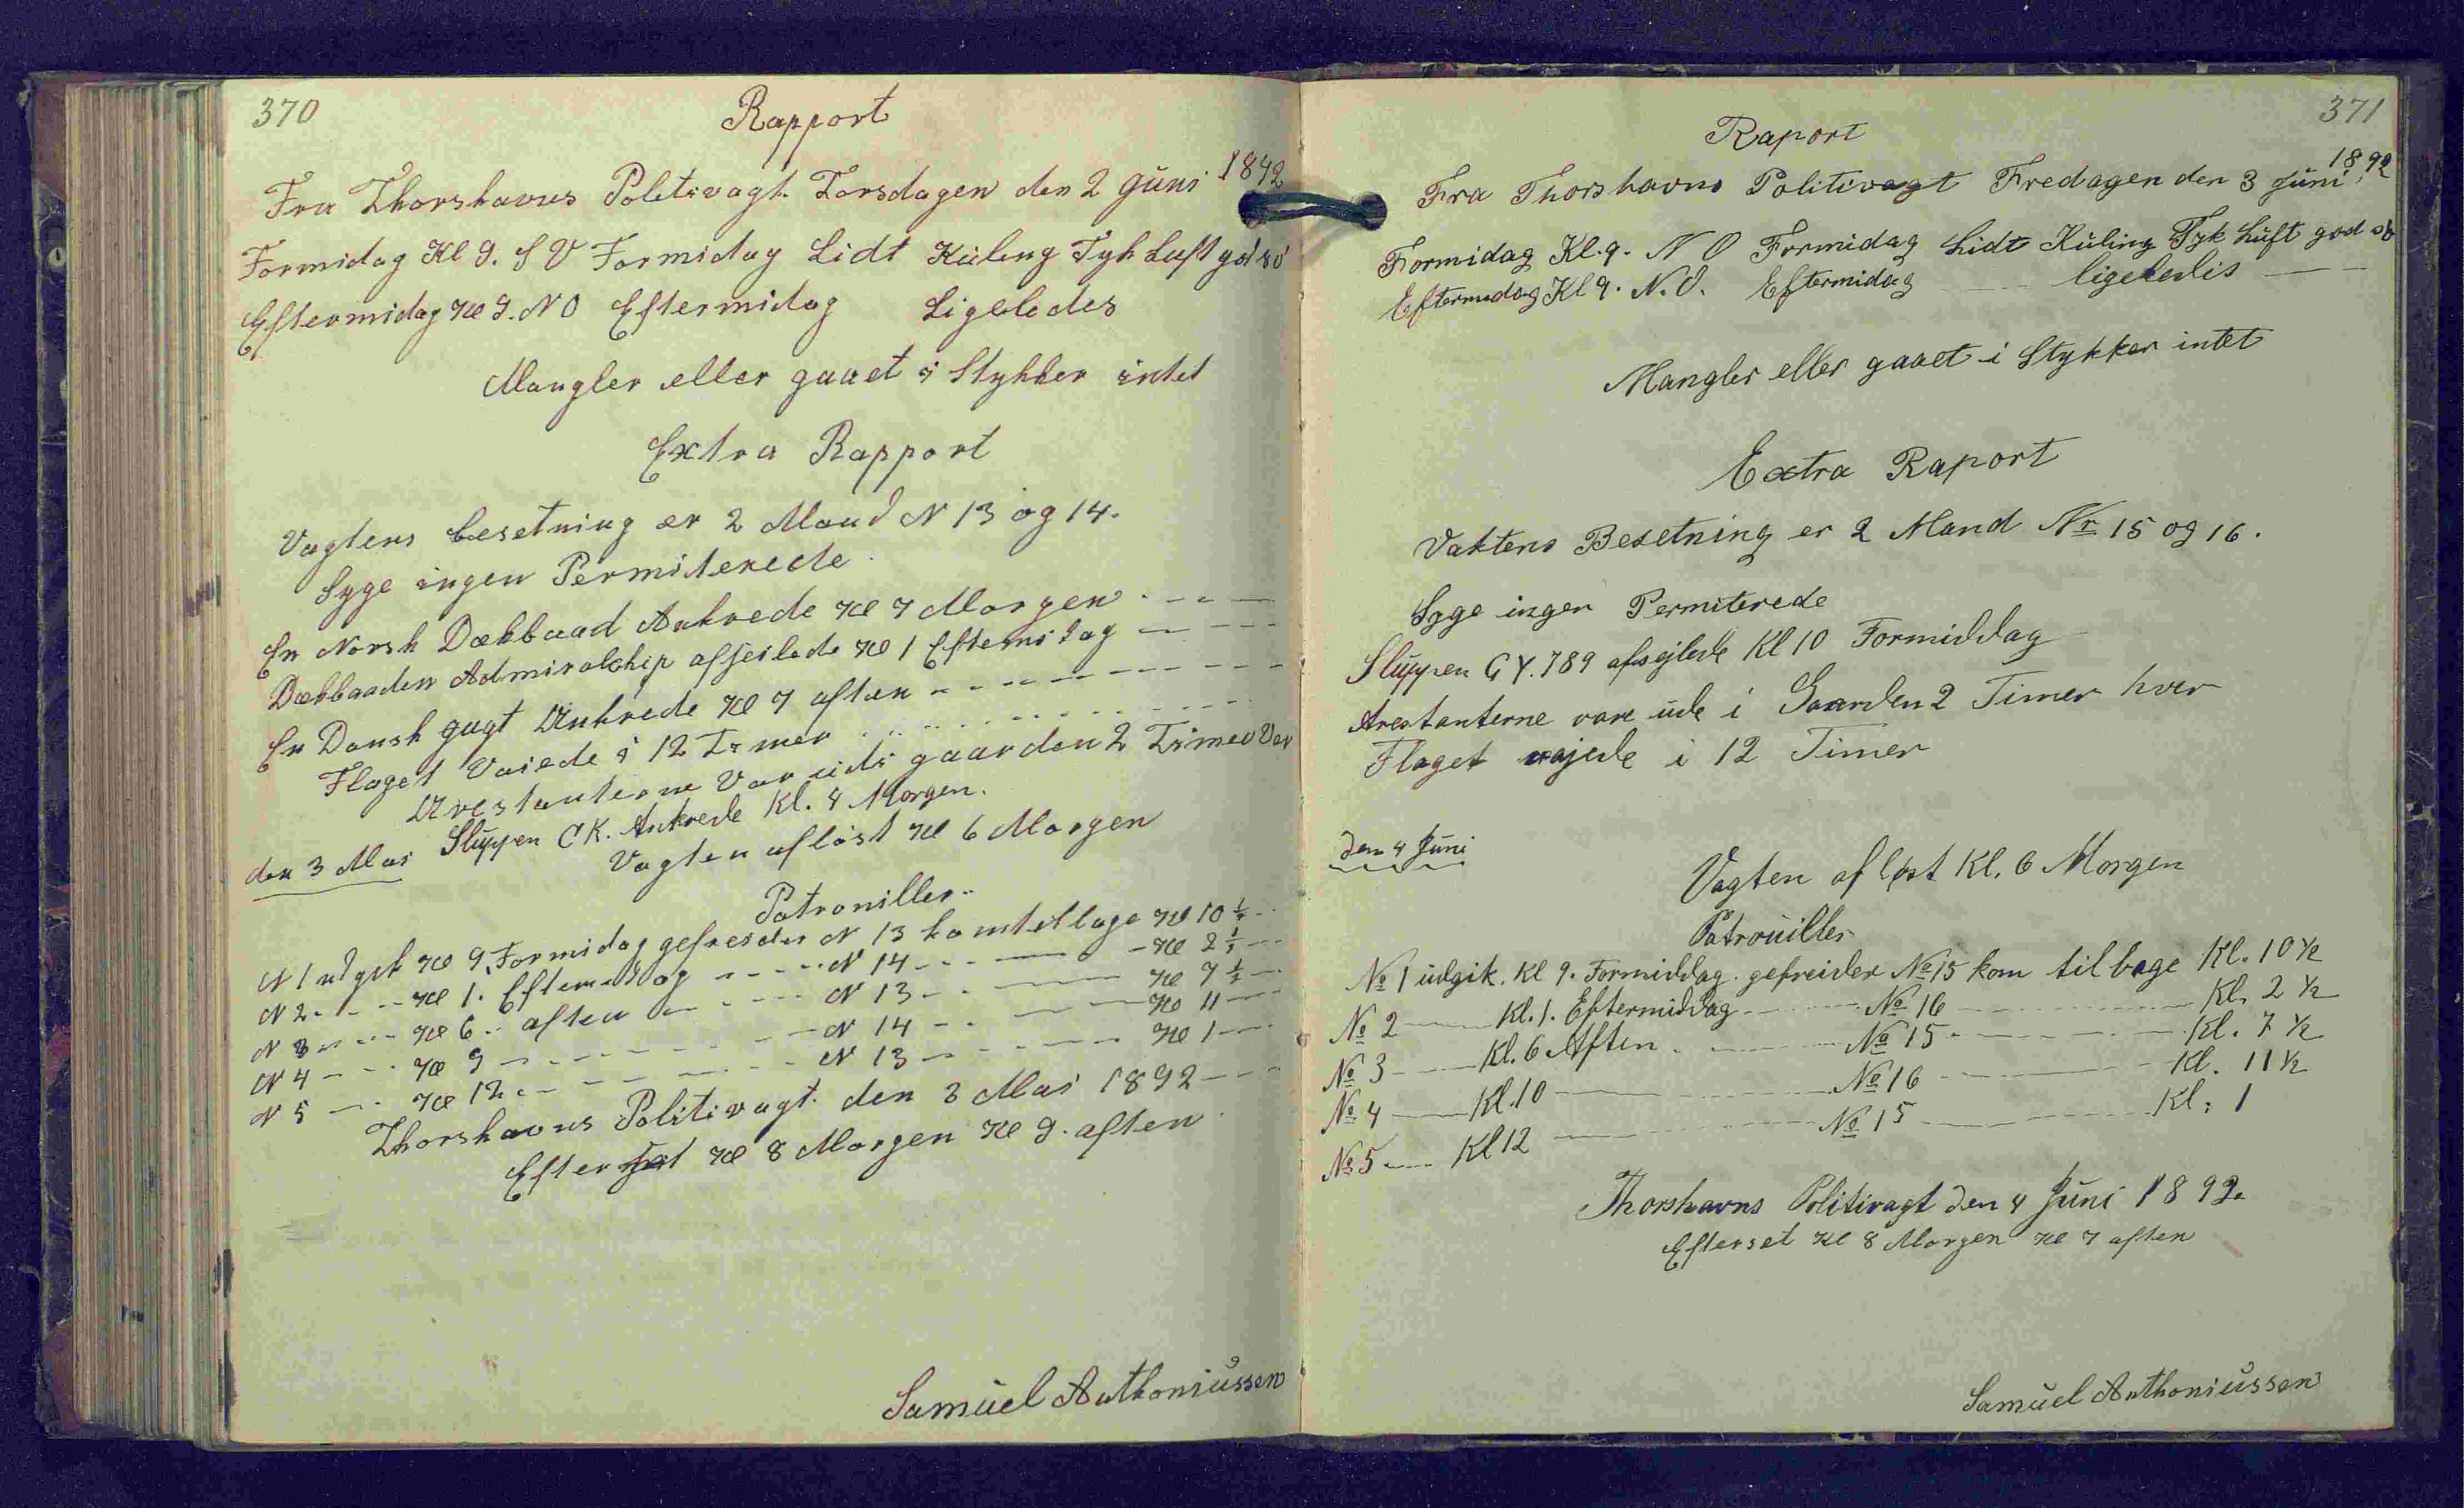 370
Rapport
Fra Thorshavns Politivagt. Torsdagen den 2 Juni 1892
Formidag Kl 9. S V Formidag Lidt Küling Tyk Luft god sö
Eftermidag Kl 9. N O Eftermidag Ligeledes
Mangler eller gaaet i Stykker intet
Extra Rapport
Vagtens besetning er 2 Mand N 13 og 14.
Syge ingen Permiterede
En Norsk Dækbaad Ankrede Kl 7 Morgen
Dækbaaden Admiralship afseilede Kl 1 Eftermidag
En Dansk Jagt Ankrede Kl 7 aften
Flaget Vaiede i 12 Timer
Arestanterne Var üdi gaarden 2 Timer Ver
den 3 Mai Slüppen C K. Ankrede Kl. 4 Morgen.
Vagten aflöst Kl 6 Morgen
Patroniller
N 1 udgik Kl 9 Formidag gefreider N 13 kom telbage Kl 10 ½
N 2 - - - Kl 1. Eftermidag - - - - N 14 - - - Kl 2 ½
N 3 - - - Kl 6 - aften - - - - N 13 - - - Kl 7 ½
N 4 - - - Kl 9 - - - - N 14 - - - Kl 11
N 5 - - - Kl 12 - - - - N 13 - - - Kl 1
Thorshavns Politivagt. den 3 Mai 1892
Efterset Kl 8 Morgen Kl 9. aften
Samüel Anthoniüssen
371
Raport
Fra Thorshavns Politivagt Fredagen den 3 Jüni 1892
Formidag Kl. 9. N O Formidag Lidt Küling Tyk Lüft god sö
Eftermidag Kl 9. N. O. Eftermidag ligeledis
Mangler eller gaaet i Stykker intet
Extra Raport
Vaktens Besetning er 2 Mand Nr 15 og 16.
Syge ingen Permiterede
Slüppen G Y. 789 afsejlede Kl 10 Formiddag
Arestanterne vare üde i Gaarden 2 Timer hver
Flaget vajede i 12 Timer
Den 4 Jüni
Vagten afløst Kl. 6 Morgen
Patroüiller
No 1 üdgik. Kl 9. Formiddag. gefreider No 15 kom tilbage Kl. 10 ½
No 2 - - - Kl. 1. Eftermiddag - - - No 16 - - - Kl. 2 ½
No 3 - - - Kl. 6 Aften - - - No 15 - - - Kl. 7 ½
No 4 - - - Kl. 10 - - - No 16 - - - Kl. 11 ½
No 5 - - - Kl 12 - - - No 15 - - - Kl. 1
Thorshavns Politivagt Den 4 Jüni 1892.
Efterset Kl 8 Morgen Kl 7 aften
Samüel Anthoniüssen